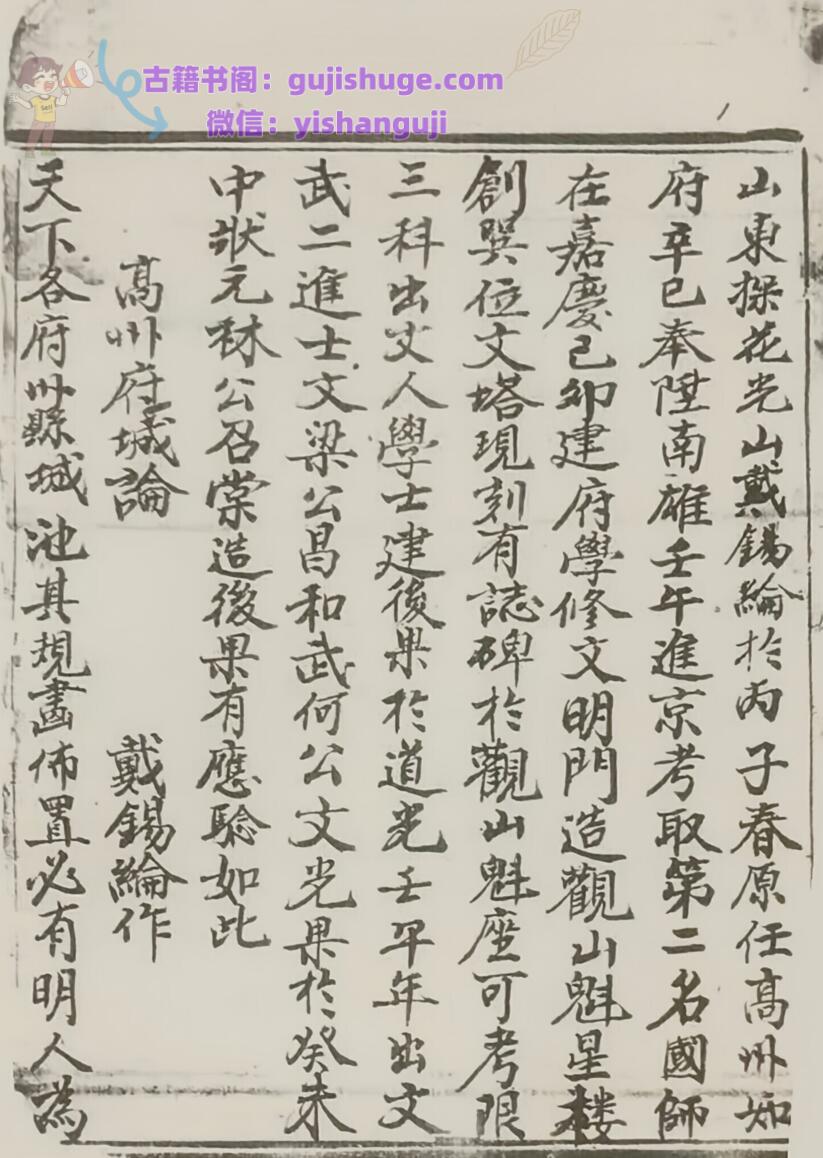 古籍书阁：gujishuge.com
微信：yishanguji
山東探花光山戴錫綸於丙子春原任高州知
府辛巳奉陞南雄壬午進京考取第二名國師
在嘉慶己卯建府學修文明門造觀山魁星楼
創巽位文塔現刻有誌碑於觀山魁座可考限
三科出文人學士建後果於道光壬午年出文
武二進士文梁公昌和武何公文光果於癸未
中狀元秝公召棠造後果有應騐如此
高州府城論 戴錫綸作
天下各府州縣城池其規畫佈置必有明人為